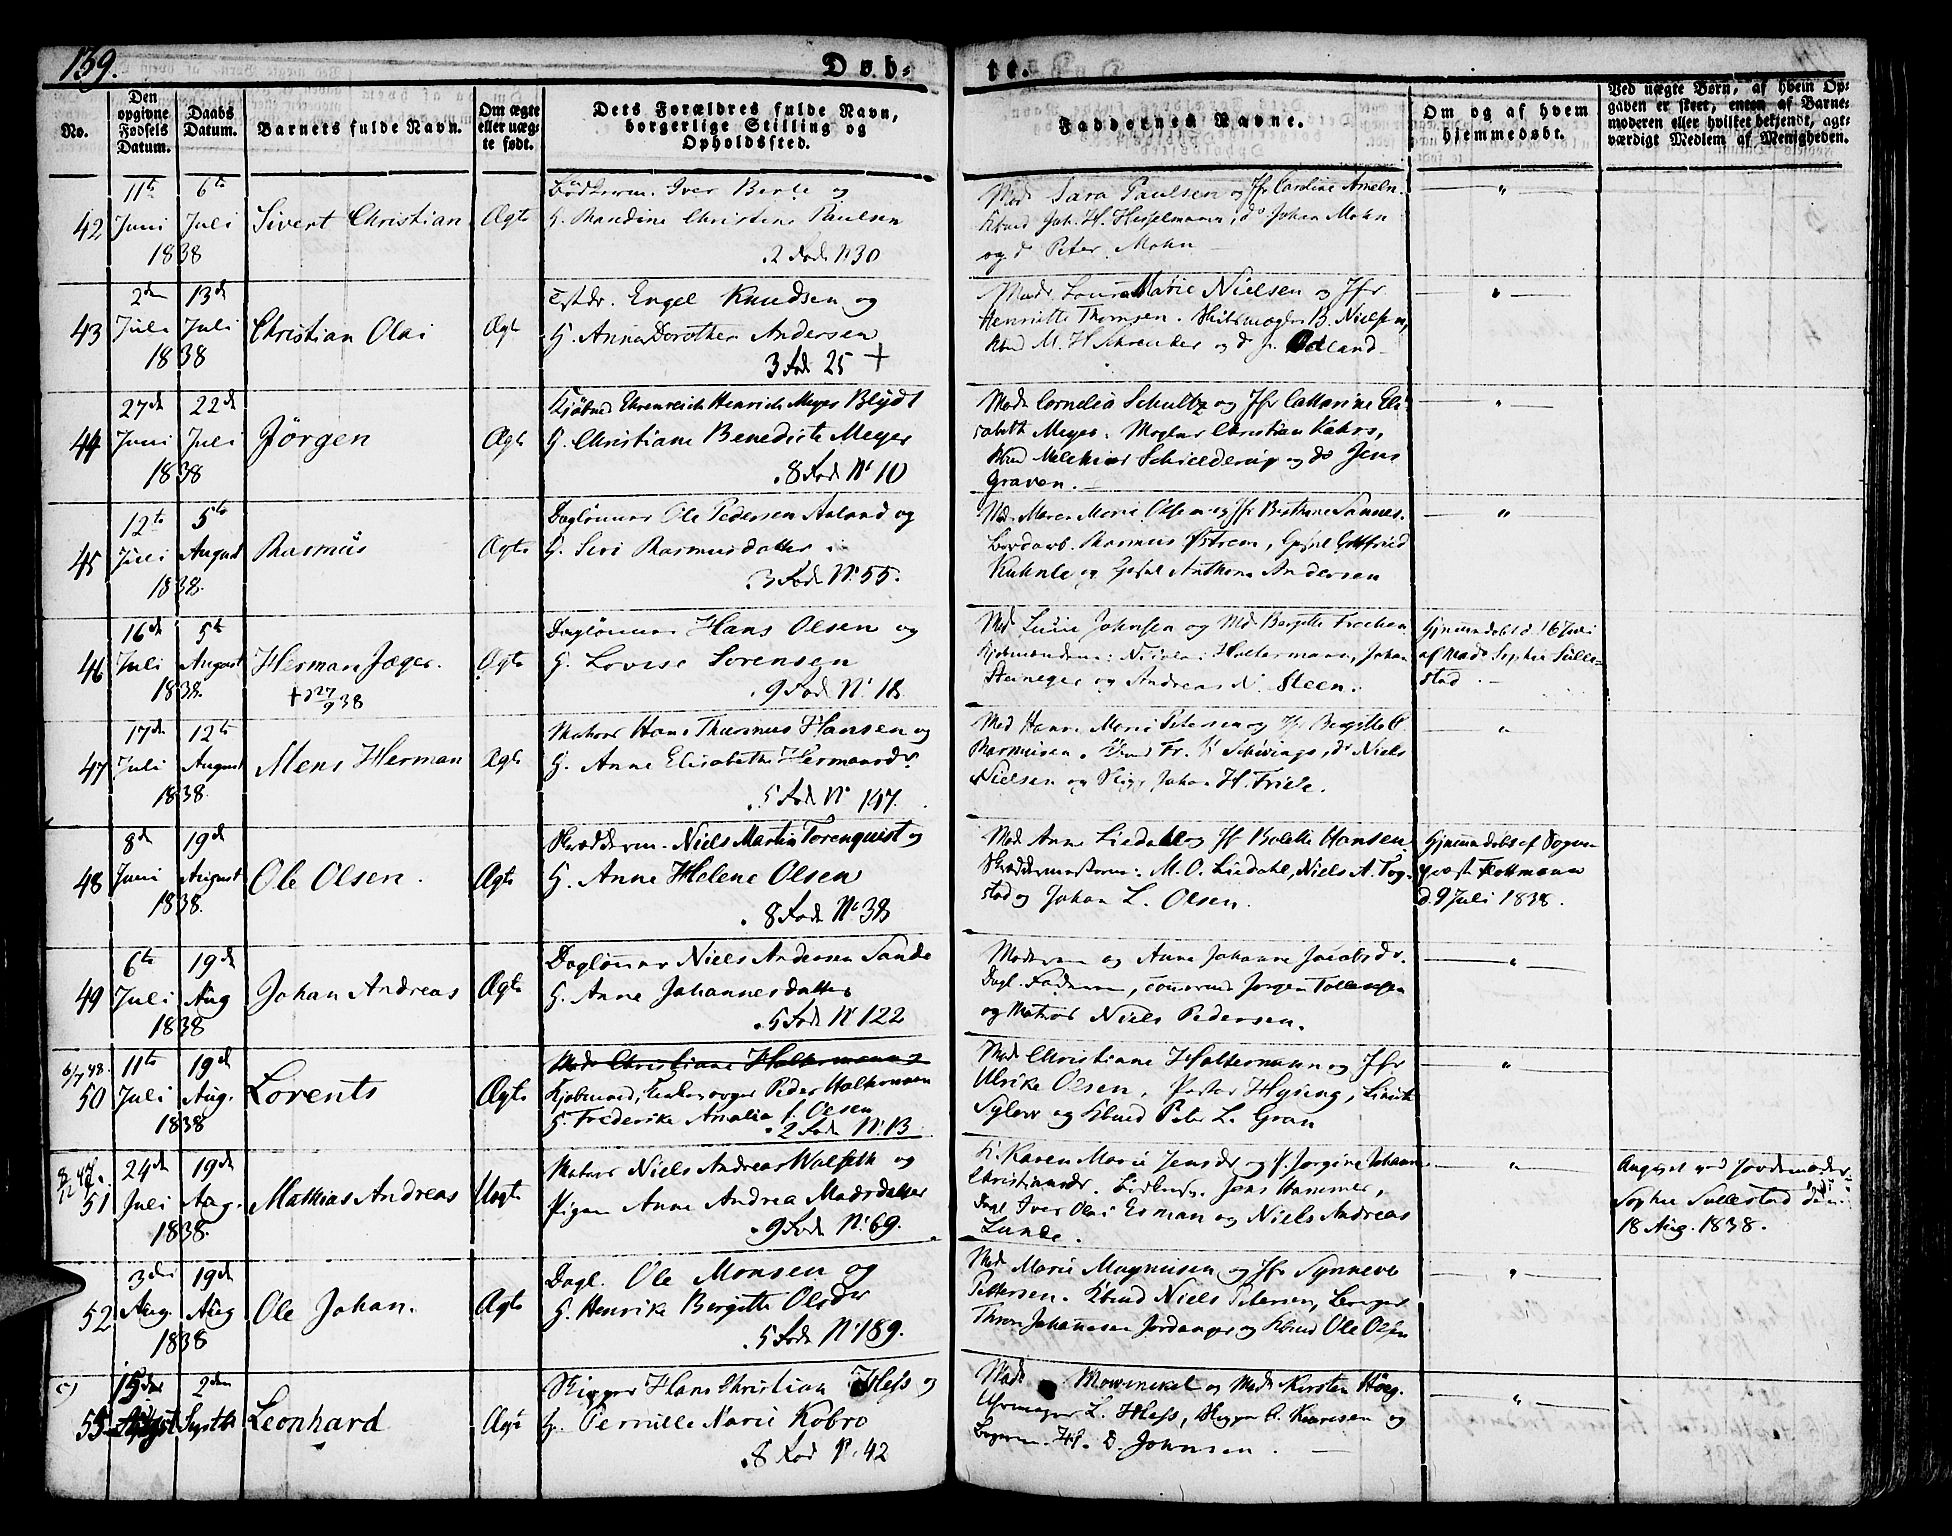 139.
Døb-
te.
No.
Den opgivne Fødsels Datum.
Daabs Datum.
Barnets fulde Navn.
Om ægte eller uægte født.
Dets Forældres fulde Navn, borgerlige Stilling og Opholdssted.
Faddernes Navne.
Om og af hvem hjemmedøbt.
Ved uægte Børn, af hvem Opgaven er skeet, enten af Barnemoderen eller hvilket bekjendt, agtværdigt Medlem af Menigheden.
42
11te Juni 1838
6te Juli
Sivert Christian
Ægte
Bødkersv. Iver Berle og
H. Randine Christine Paulsen
2 Fod No 30
Mad. Sara Paulsen og Jfr Caroline Ameln.
Kbmd Joh. H. Hesselmann, do Johan Mohn
og do Peter Mohn
43
2den Juli 1838
13de Juli
Christian Olai
Ægte
Engel Knudsen og
H. Anna Dorothea Andersen
3 Fod 25 +
Mad. Laura Marie Nielsen og Jfr
Henriette Thomsen. B. Nielsen,
Kbmd M. H. Schreuder og do
44
27de Juni 1838
22de Juli
Jørgen
Ægte
Kjøbmd Ehrenreich Henrich Meyer Blydt
H. Christiane Benedicte Meyer
8 Fod No 10
Mad. Cornelia Schultz og Jfr Catharine Eli-
sabeth Meyer. Mægler Christian Kahrs,
Kbmd Melchior Schielderup og do Jens
Graven.
45
12te Juli 1838
5te August
Rasmus
Ægte
Daglønner Ole Pedersen Aaland og
H. Siri Rasmusdatter
3 Fod No 55.
Md. Maren Marie Olsen og Jfr Sannes.
Rasmus Østrem, Gottfried
Kuhnle og Anthon Andersen
46
16de Juli 1838
5te August
Herman Jæger.
+ d 27/9 38
Ægte
Daglønner Hans Olsen og
H. Lovise Sørensen
9 Fod No 18
Md Johnsen og Md Bergitte
Kjøbmændene: Nicolai Holtermann, Johan
Steineger og Andreas N. Steen.
Hjemmedøbt d. 16 Juli
af Mad. Sophie Sülle-
stad
47
17de Juli 1838
12te August
Mens Herman
Ægte
Matros Hans Thurmus Hansen og
H. Anne Elisabeth Hermansdr
5 Fod No 147.
Md Hanna Marie Petersen og Jfr Bergitte
Rasmusen. Kbmd Fr. do Niels
Nielsen og Johan H. Friele.
48
8de Juni 1838
19de August
Ole Olsen.
Ægte
Skræddersv. Niels Martin Torenquist og
H. Anne Helene Olsen
8 Fod No 38
Mad Anne Liedahl og Jfr Bolette Hansen.
Skræddermesterne: M. O. Liedahl, Niels A. Tog-
stad og Johan L. Olsen.
Hjemmedøbt af Sogne-
præst Flottmann
d. 9 Juli 1838.
49
6te Juli 1838
19de Aug
Johan Andreas
Ægte
Daglønner Niels Andersen Sande
H. Anne Johannesdatter
5 Fod No 122
Moderen og Anne Johanne Jacobsdr.
Dagl. Faderen, Jørgen Tollefsen
og Matros Niels Pedersen.
6/7 48.
50
11te Juli 1838
19de Aug.
Lorents
Ægte
Mad. Christiane Holtermann
Kjøbmand, Peder Holtermann
H. Frederikke Amalia f. Olsen
2 Fod No 13
Mad. Christiane Holtermann og Jfr
Ulrikke Olsen, Pastor Hysing, Lieut.
Sylow og Kbmd Peter L. Gran
51
24de Juli 1838.
19de Aug.
Mathias Andreas
Uægte
Matros Niels Andreas Walseth og
Pigen Anne Andrea Madsdatter
9 Fod No 69.
K. Karen Marie Jensdr og P. Jørgine Johanne
Christiansdr. Jens Hammer,
Dagl Iver Olai Esman og Niels Andreas
Lunde.
Angivet ved Jordemoder
Sophie Sullestad den
18 Aug. 1838.
52
3die Aug. 1838
19de Aug
Ole Johan.
Ægte
Dagl. Ole Monsen og
H. Henrikke Bergitte Olsdr
5 Fod No 189.
Md Marie Magnusen og Jfr Synneve
Pettersen. Kbmd Niels Petersen,
Johannesen Jordanger og Kbmd Ole Olsen
53
15de August
2den Septbr
Leonhard
Ægte
Skipper Hans Christian Hess og
H. Pernille Marie Kobro
8 Fod No 42
Mad. Mowinckel og Mad. Kirsten Høeg.
Uhrmager L. Hess, Skipper
D. Johnsen.